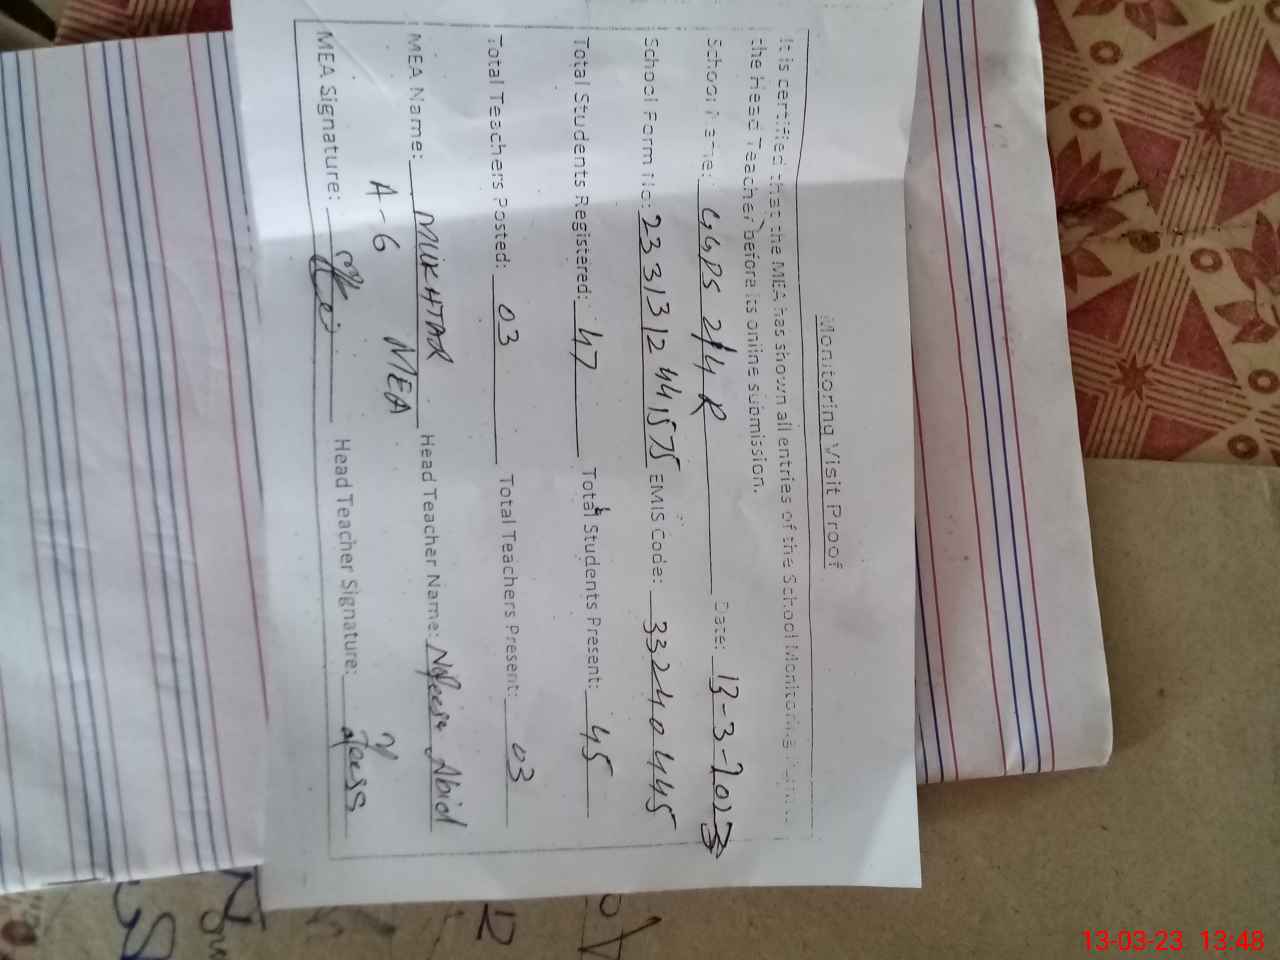 Monitoring Visit Proof
It is certified that the MEA has shown all entries of the School Monitoring
the Head Teacher before its online submission.
School Name: GGPS 2/4 R Date: 13-3-2023
School Form No: 2331312441575 EMIS Code: 33240445
Total Students Registered: 47 Total Students Present: 45
Total Teachers Posted: 03 Total Teachers Present: 03
MEA Name: MUKHTAR Head Teacher Name: Nafeesa Abid
A-6 MEA
MEA Signature: Head Teacher Signature:
13-03-23 13:48